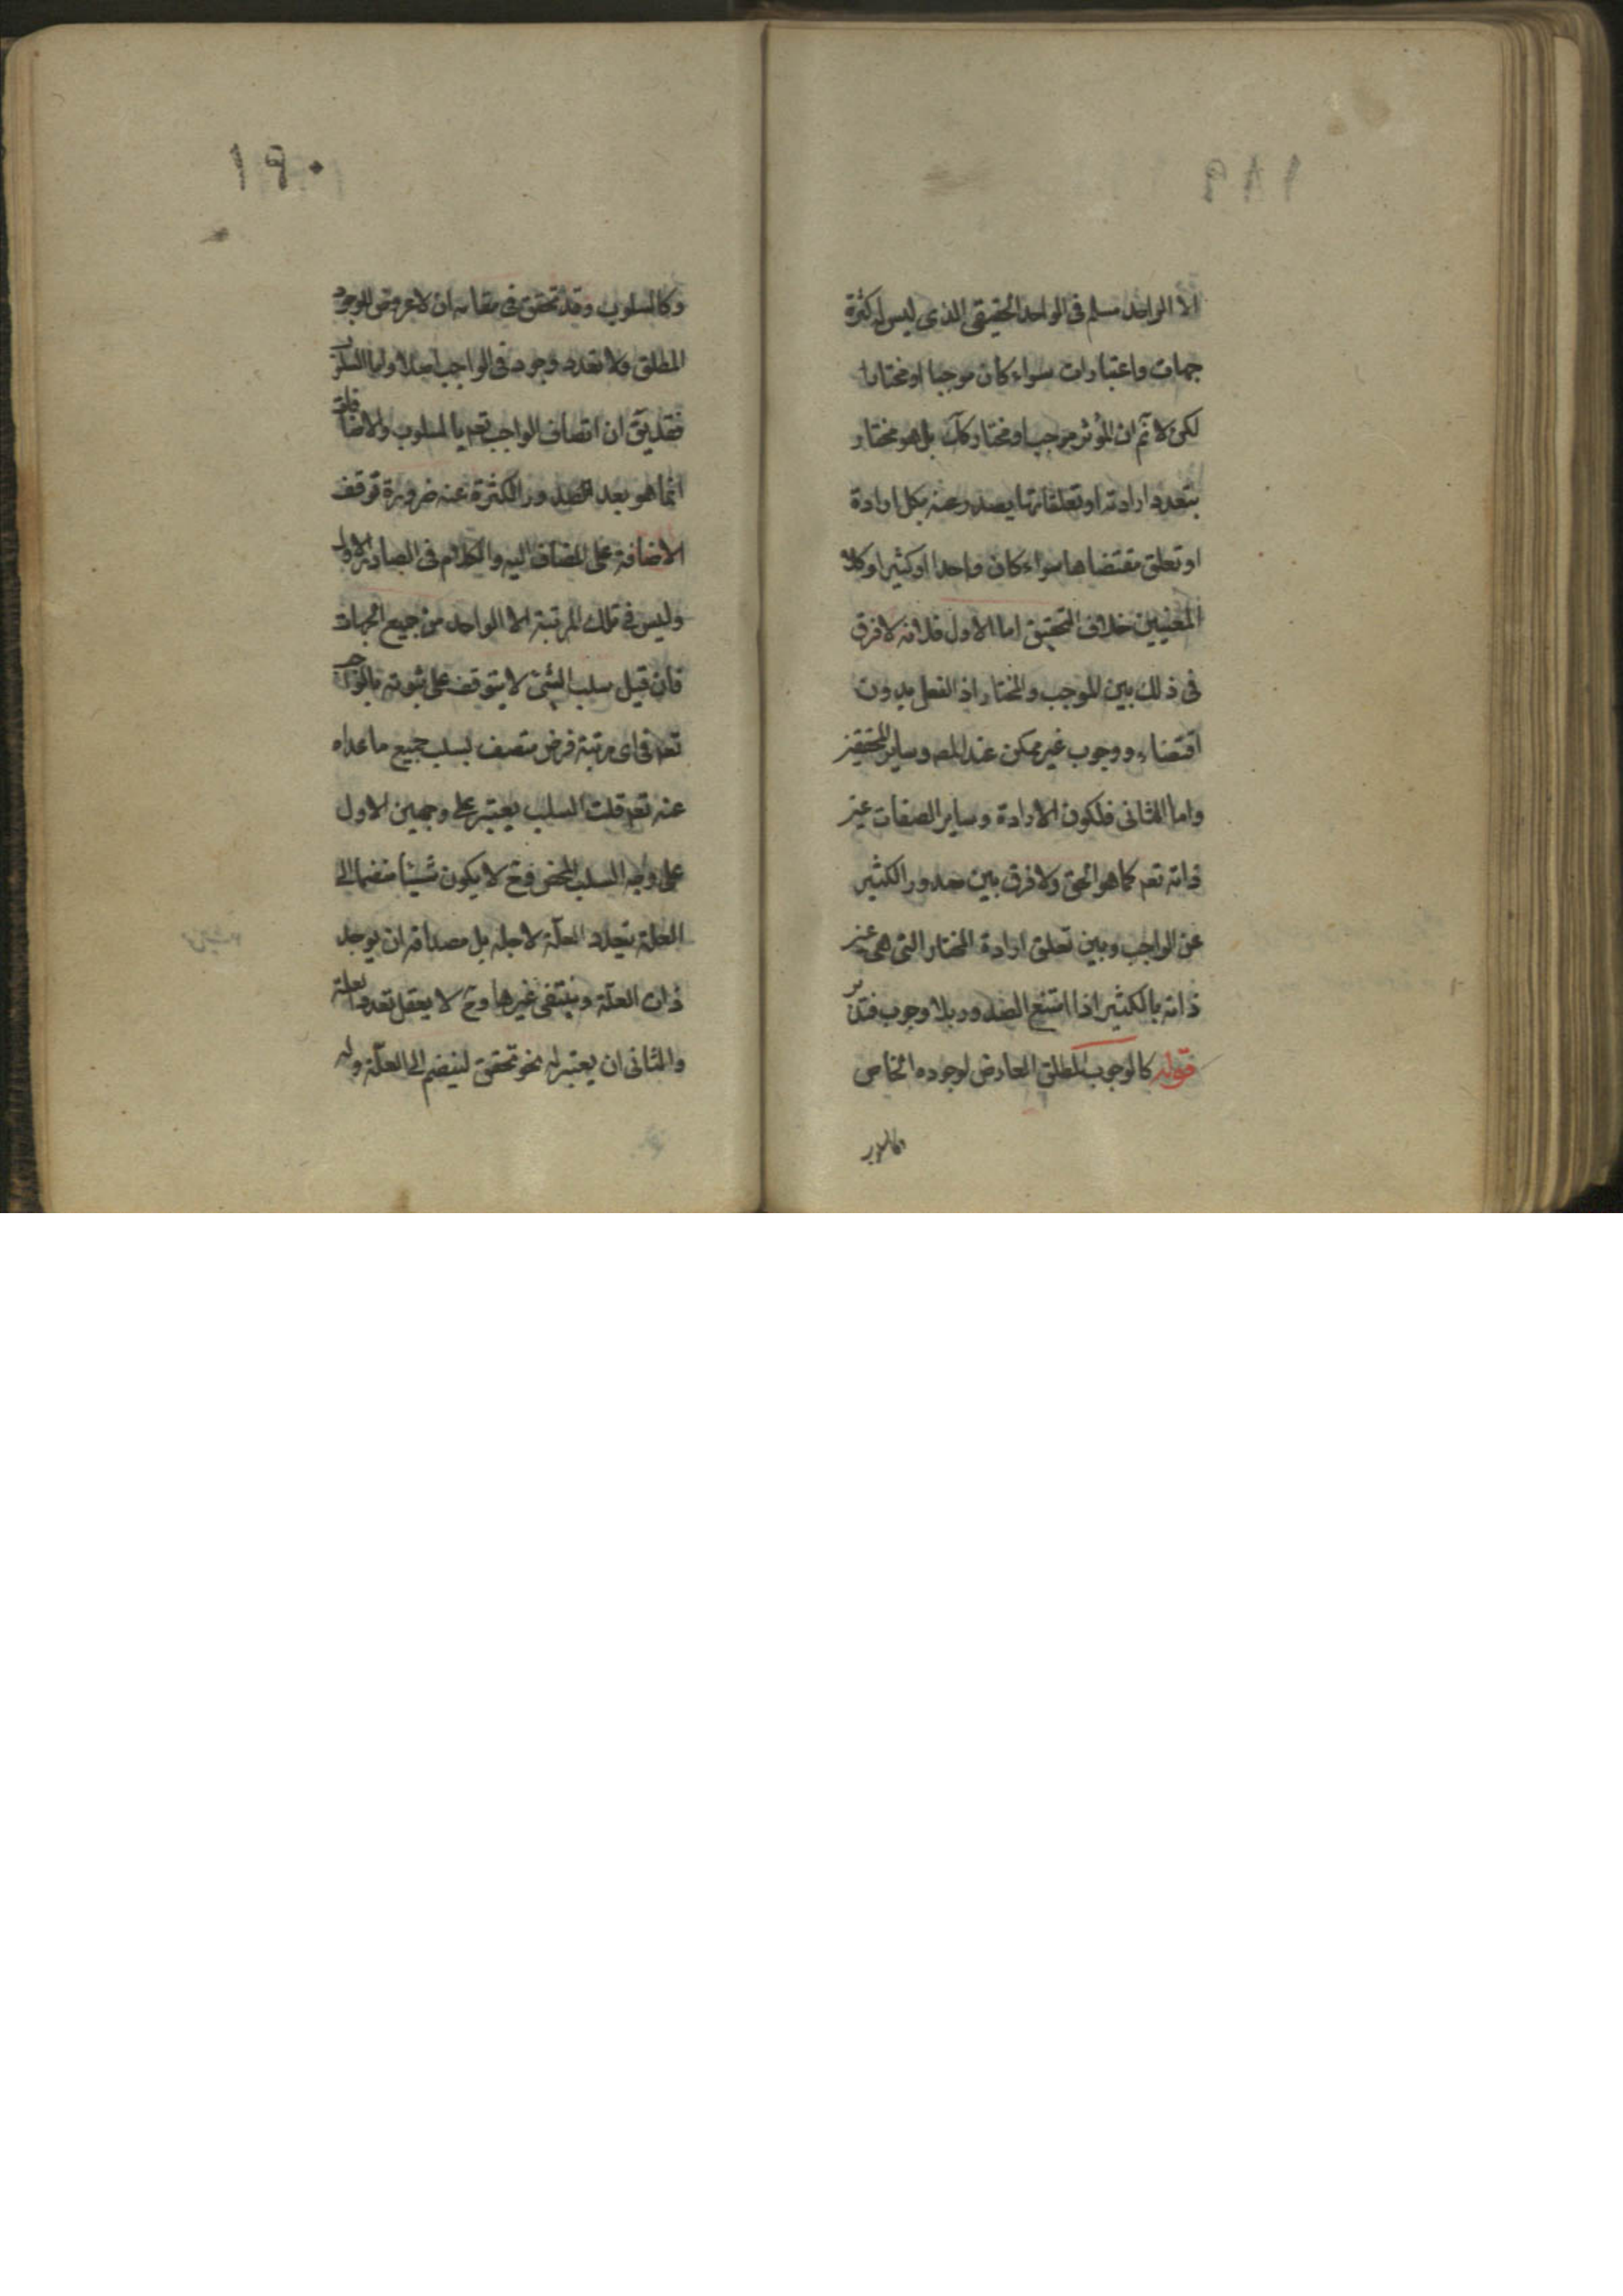 ١٨٩
الا الواحد مسلم فى الواحد الحقيقى الذى ليس له كثرة
جهات واعتبارات سواء كان موجبا او مختارا
لكن لا تم ان المؤثر موجب او مختار كك بل هو مختار
بتعدد ارادته او تعلقاتها يصدر عنه بكل ارادة
او تعلق مقتضاها سواء كان واحدا او كثيرا وكلا
المعنيين خلاف التحقيق اما الاول فلانه لا فرق
فى ذلك بين الموجب والمختار اذ الفعل بدون
اقتضاء ووجوب غير ممكن عند المصه وساير المحققين
واما الثانى فلكون الارادة وساير الصفات عين
ذاته تعم كما هو الحق ولا فرق بين صدور الكثير
عن الواجب وبين تعلق ارادة المختار التى هى عين
ذاته بالكثير اذا امتنع الصدور بلا وجوب فتدبر
قوله كالوجوب المطلق العارض لوجوده الخاص
١٩٠
وكالسلوب وقد تحقق فى مقامه ان لا عروض للوجود
المطلق ولا تعدد وجود فى الواجب اصلا واما السلوب
فقد يق ان اتصاف الواجب تعم بالسلوب والاضافات
انما هو بعد الصدور الكثرة عنه ضرورة توقف
الاضافة على المضاف اليه والكلام فى الصادر الاول
وليس فى تلك المرتبة الا الواحد من جميع الجهات
فان قيل سلب الشئ لا يتوقف على ثبوته فالواجب
تعم فى اى مرتبة فرض متصف بسلب جميع ما عداه
عنه تعم قلت السلب يعتبر على وجهين الاول
على وجه السلب المحض وح لا يكون شيئا منضما الى
العلة يتعدد العلّة لاجله بل مصداقه ان يوجد
ذات العلّة وينتفى غيرها وح لا يعقل تعدد العلة
والثانى ان يعتبر له نحو تحقق لينضم الى العلّة وله